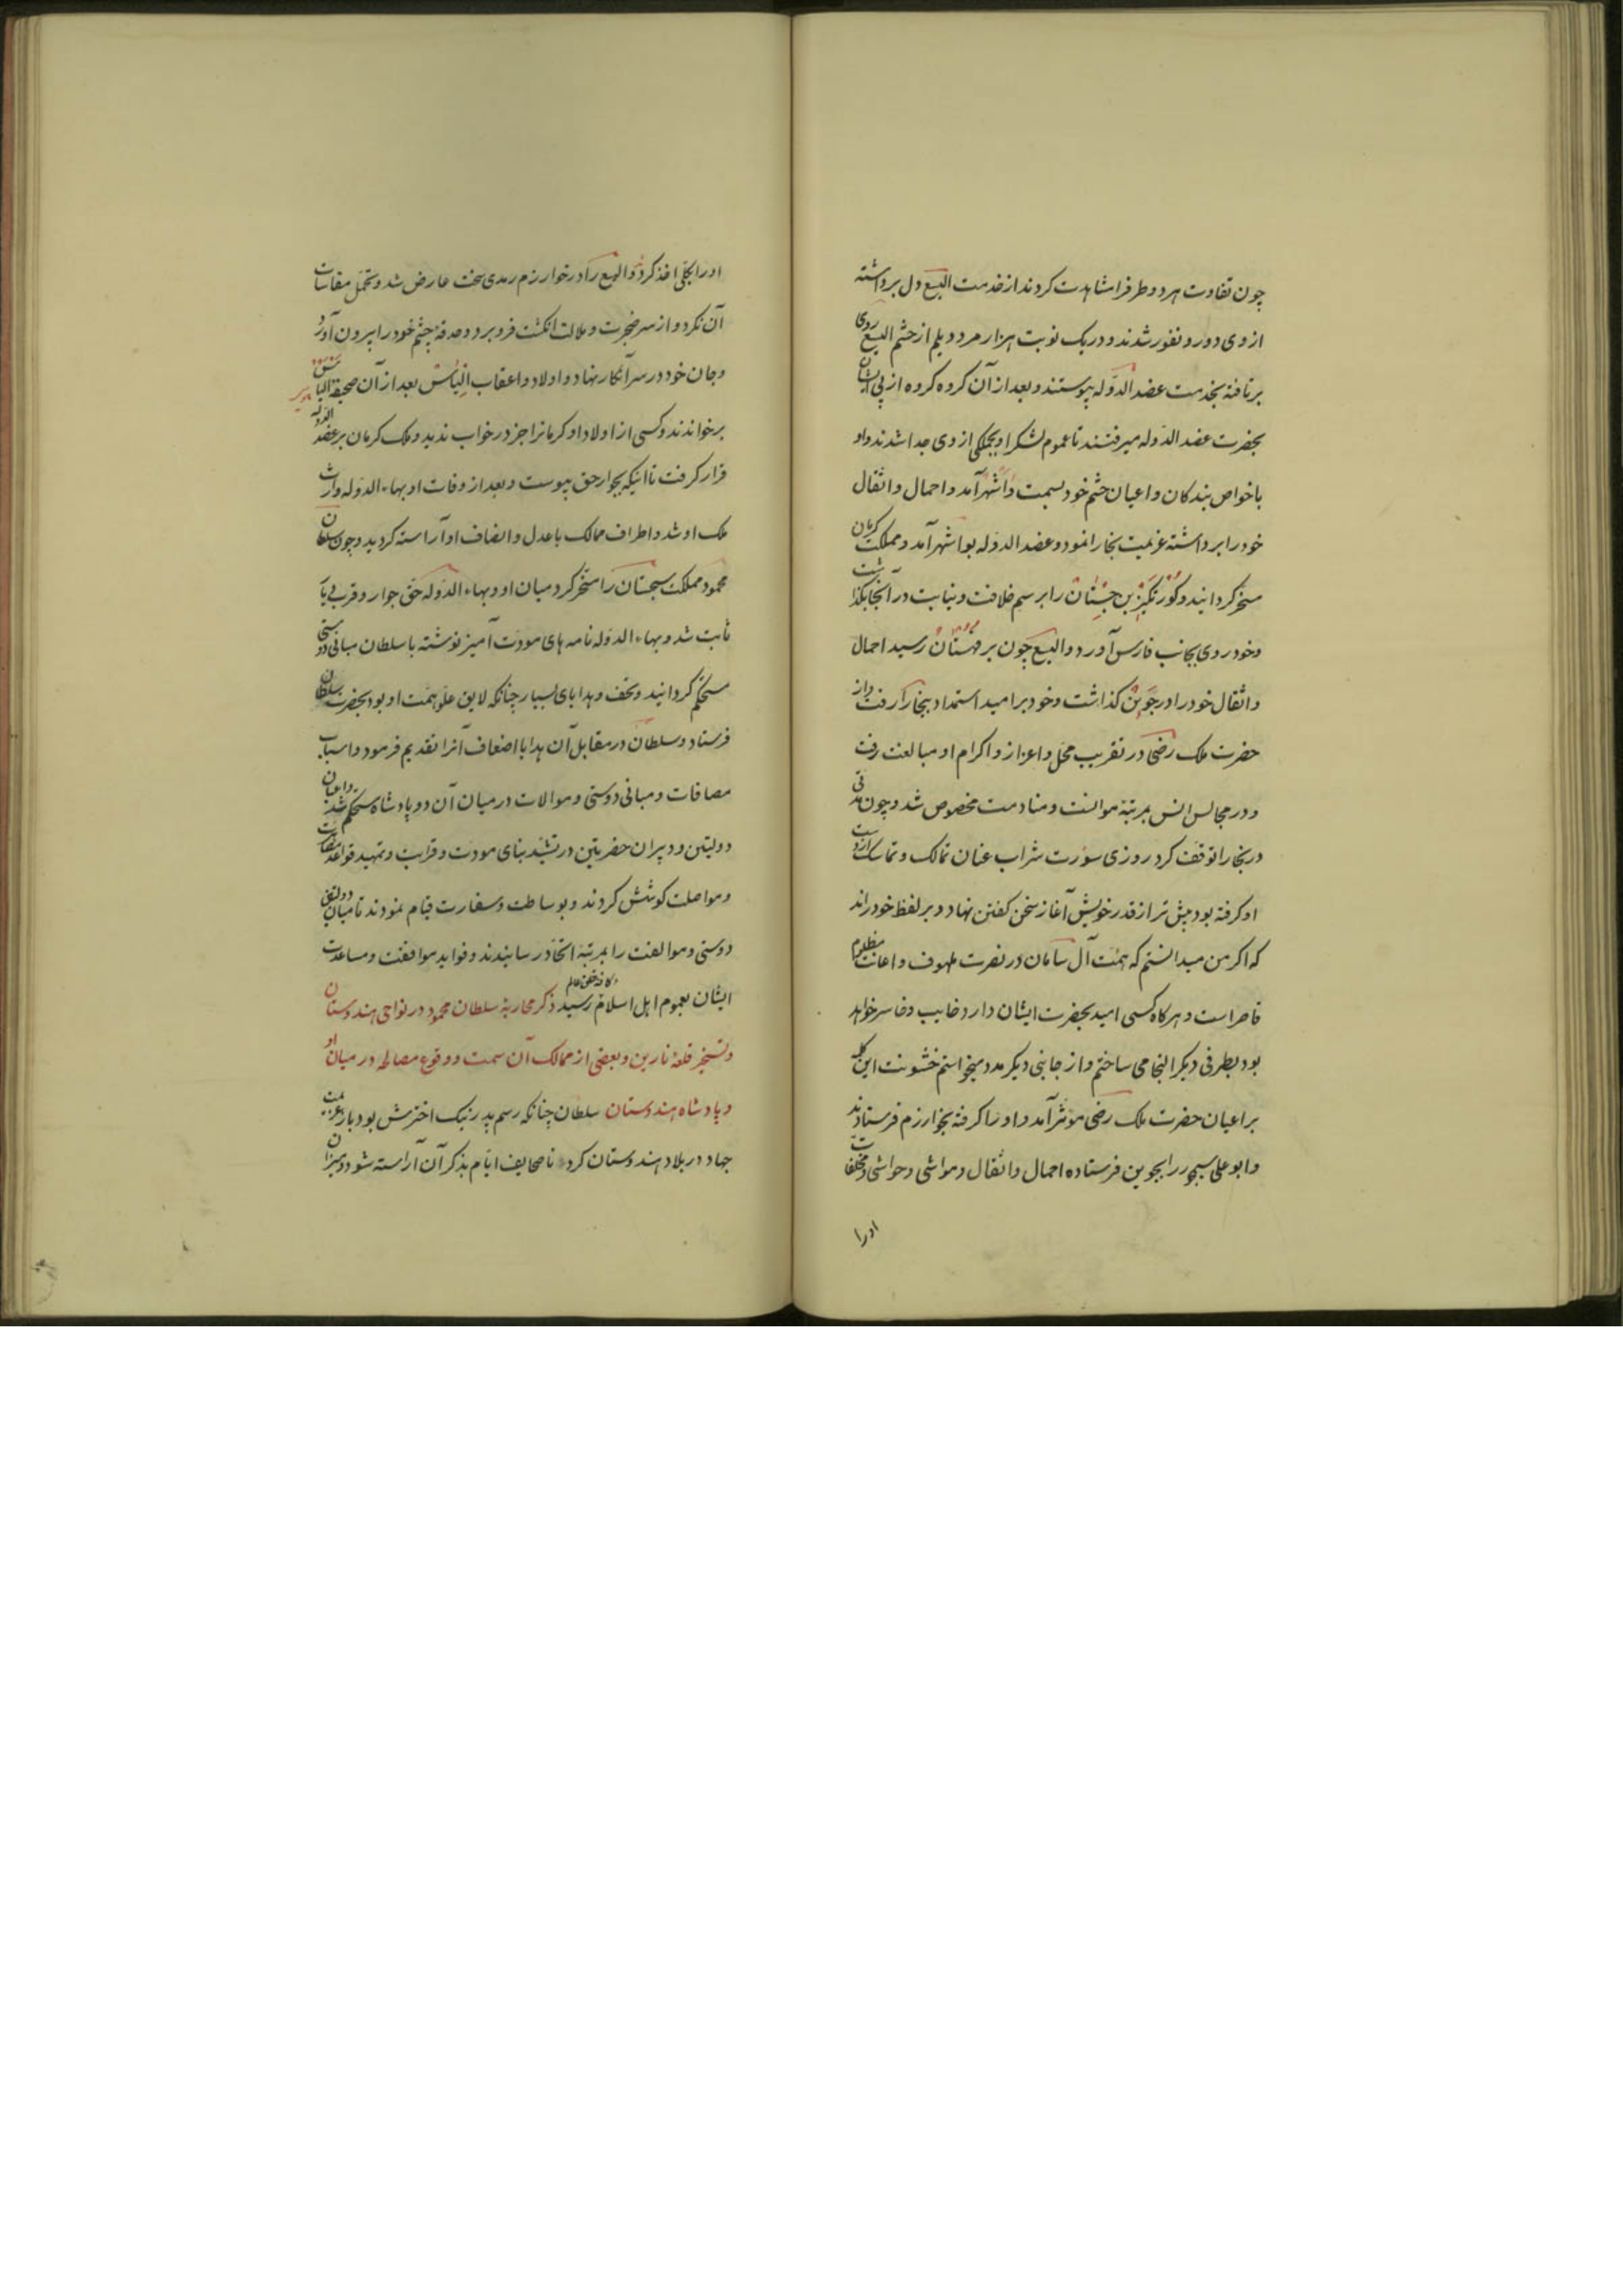 چون تفاوت هر دو طرف را مشاهدت کردند از خدمت الیسع دل برداشته
از وی دور و نفور شدند و در یک نوبت هزار مرد دیلم از حشم الیسع روی
برتافته بخدمت عضد الدوله پیوستند و بعد از آن کروه کروه از پی ایشان
بحضرت عضد الدوله میرفتند تا عموم لشکر او بجملکی از وی جدا شدند و او
با خواص بندکان و اعیان حشم خود بسمت واشهر آمد و احمال و اثقال
خود را برداشته عزیمت بخارا نمود و عضد الدوله بواشهر آمد و مملکت کرمان
مسخر کردانید و کورتکیز بن جستان را برسم خلافت و نیابت در آنجا بکذاشت
و خود روی بجانب فارس آورد و الیسع چون بر قهستان رسید احمال
و اثقال خود را در جوین کذاشت و خود بر امید استمداد ببخارا رفت و از
حضرت ملک رضی در تقریب محل و اعزاز و اکرام او مبالغت رفت
و در مجالس انس بمرتبهٔ موانست و منادمت مخصوص شد و چون مدتی
در بخارا توقف کرد روزی سورت شراب عنان تمالک و تماسک از دست
او کرفته بود بیش تر از قدر خویش آغاز سخن کفتن نهاد و بر لفظ خود راند
که اکر من میدانستم که همت آل سامان در نصرت ملهوف و اعانت مظلوم
قاصر است و هر کاه کسی امید بحضرت ایشان دارد خایب و خاسر خواهد
بود بطرفی دیکر التجا می ساختم و از جانبی دیکر مدد میخواستم خشونت این کله
بر اعیان حضرت ملک رضی موثر آمد و او را کرفته بخوارزم فرستادند
و ابو علی سیمجور را بجوین فرستاده احمال و اثقال و مواشی و حواشی و مخلفات
او را
او را بکلی اخذ کرد و الیسع را در خوارزم رمدی سخت عارض شد و تحمل مقاسات
آن نکرد و از سر ضجرت و ملالت انکشت فرو برد و حدقهٔ چشم خود را بیرون آورد
و جان خود در سر آنکار نهاد و اولاد و اعقاب الیاس بعد از آن صحیفه الیاس
برخواندند و کسی از اولاد او کرمانرا جز در خواب ندید و ملک کرمان بر عضد الدوله
قرار کرفت تا اینکه بجوار حق پیوست و بعد از وفات او بهاء الدوله وارث
ملک او شد و اطراف ممالک با عدل و انصاف او آراسته کردید و چون سلطان
محمود مملکت سجستان را مسخر کرد میان او و بهاء الدوله حق جوار و قرب دیار
ثابت شد و بهاء الدوله نامه های مودت آمیز نوشته با سلطان مبانی دوستی
مستحکم کردانید و تحف و هدایای بسیار چنانکه لایق علو همت او بود بحضرت سلطان
فرستاد و سلطان در مقابل آن هدایا اضعاف آنرا تقدیم فرمود و اسباب
مصافات و مبانی دوستی و موالات در میان آن دو پادشاه مستحکم شد و اعیان
دولتین و دبیران حضرتین در تشیید بنای مودت و قرابت و تمهید قواعد
و مواصلت کوشش کردند و بوساطت و سفارت قیام نمودند تا میان دولتین
دوستی و موالفت را بمرتبهٔ اتحاد رسانیدند و فواید موافقت و مساعدت
ایشان بعموم اهل اسلام رسید ذکر محاربهٔ سلطان محمود در نواحی هندوستان
و تسخیر قلعهٔ نارین و بعضی از ممالک آن سمت و وقوع مصالحه در میان او
و پادشاه هندوستان سلطان چنانکه رسم پدر نیک اخترش بود باز عزیمت
جهاد در بلاد هندوستان کرد تا صحایف ایام بذکر آن آراسته شود و میزان